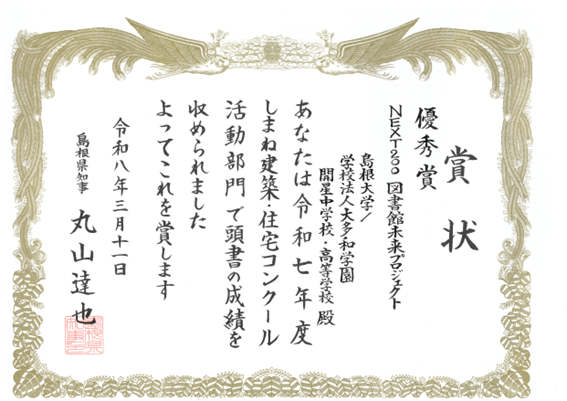 賞状
優秀賞
NEXT200 図書館未来プロジェクト
島根大学/
学校法人大多和学園
開星中学校・高等学校 殿
あなたは令和七年度
しまね建築・住宅コンクール
活動部門で頭書の成績を
収められました
よってこれを賞します
令和八年三月十一日
島根県知事 丸山達也